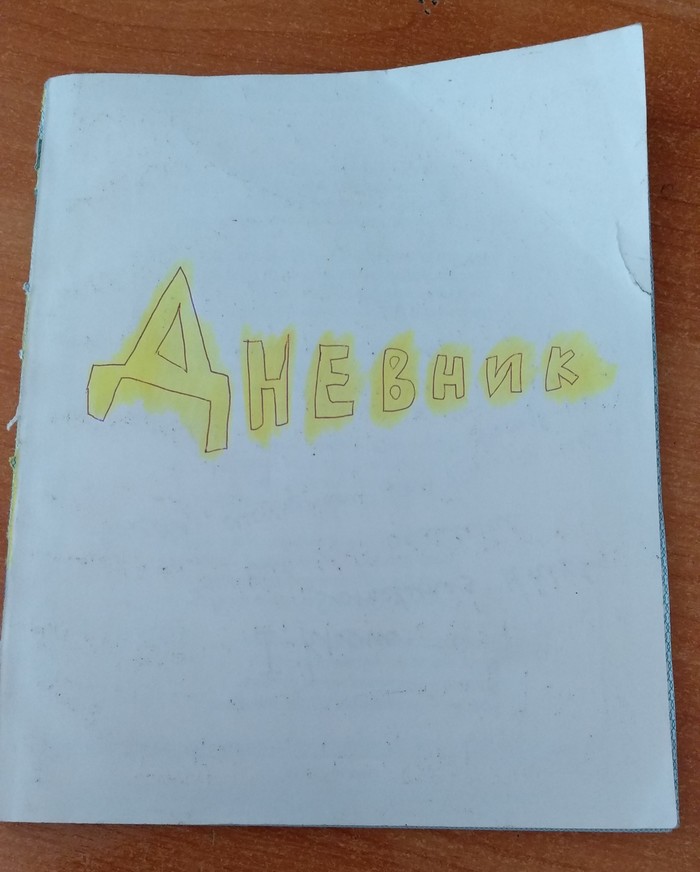 Дневник